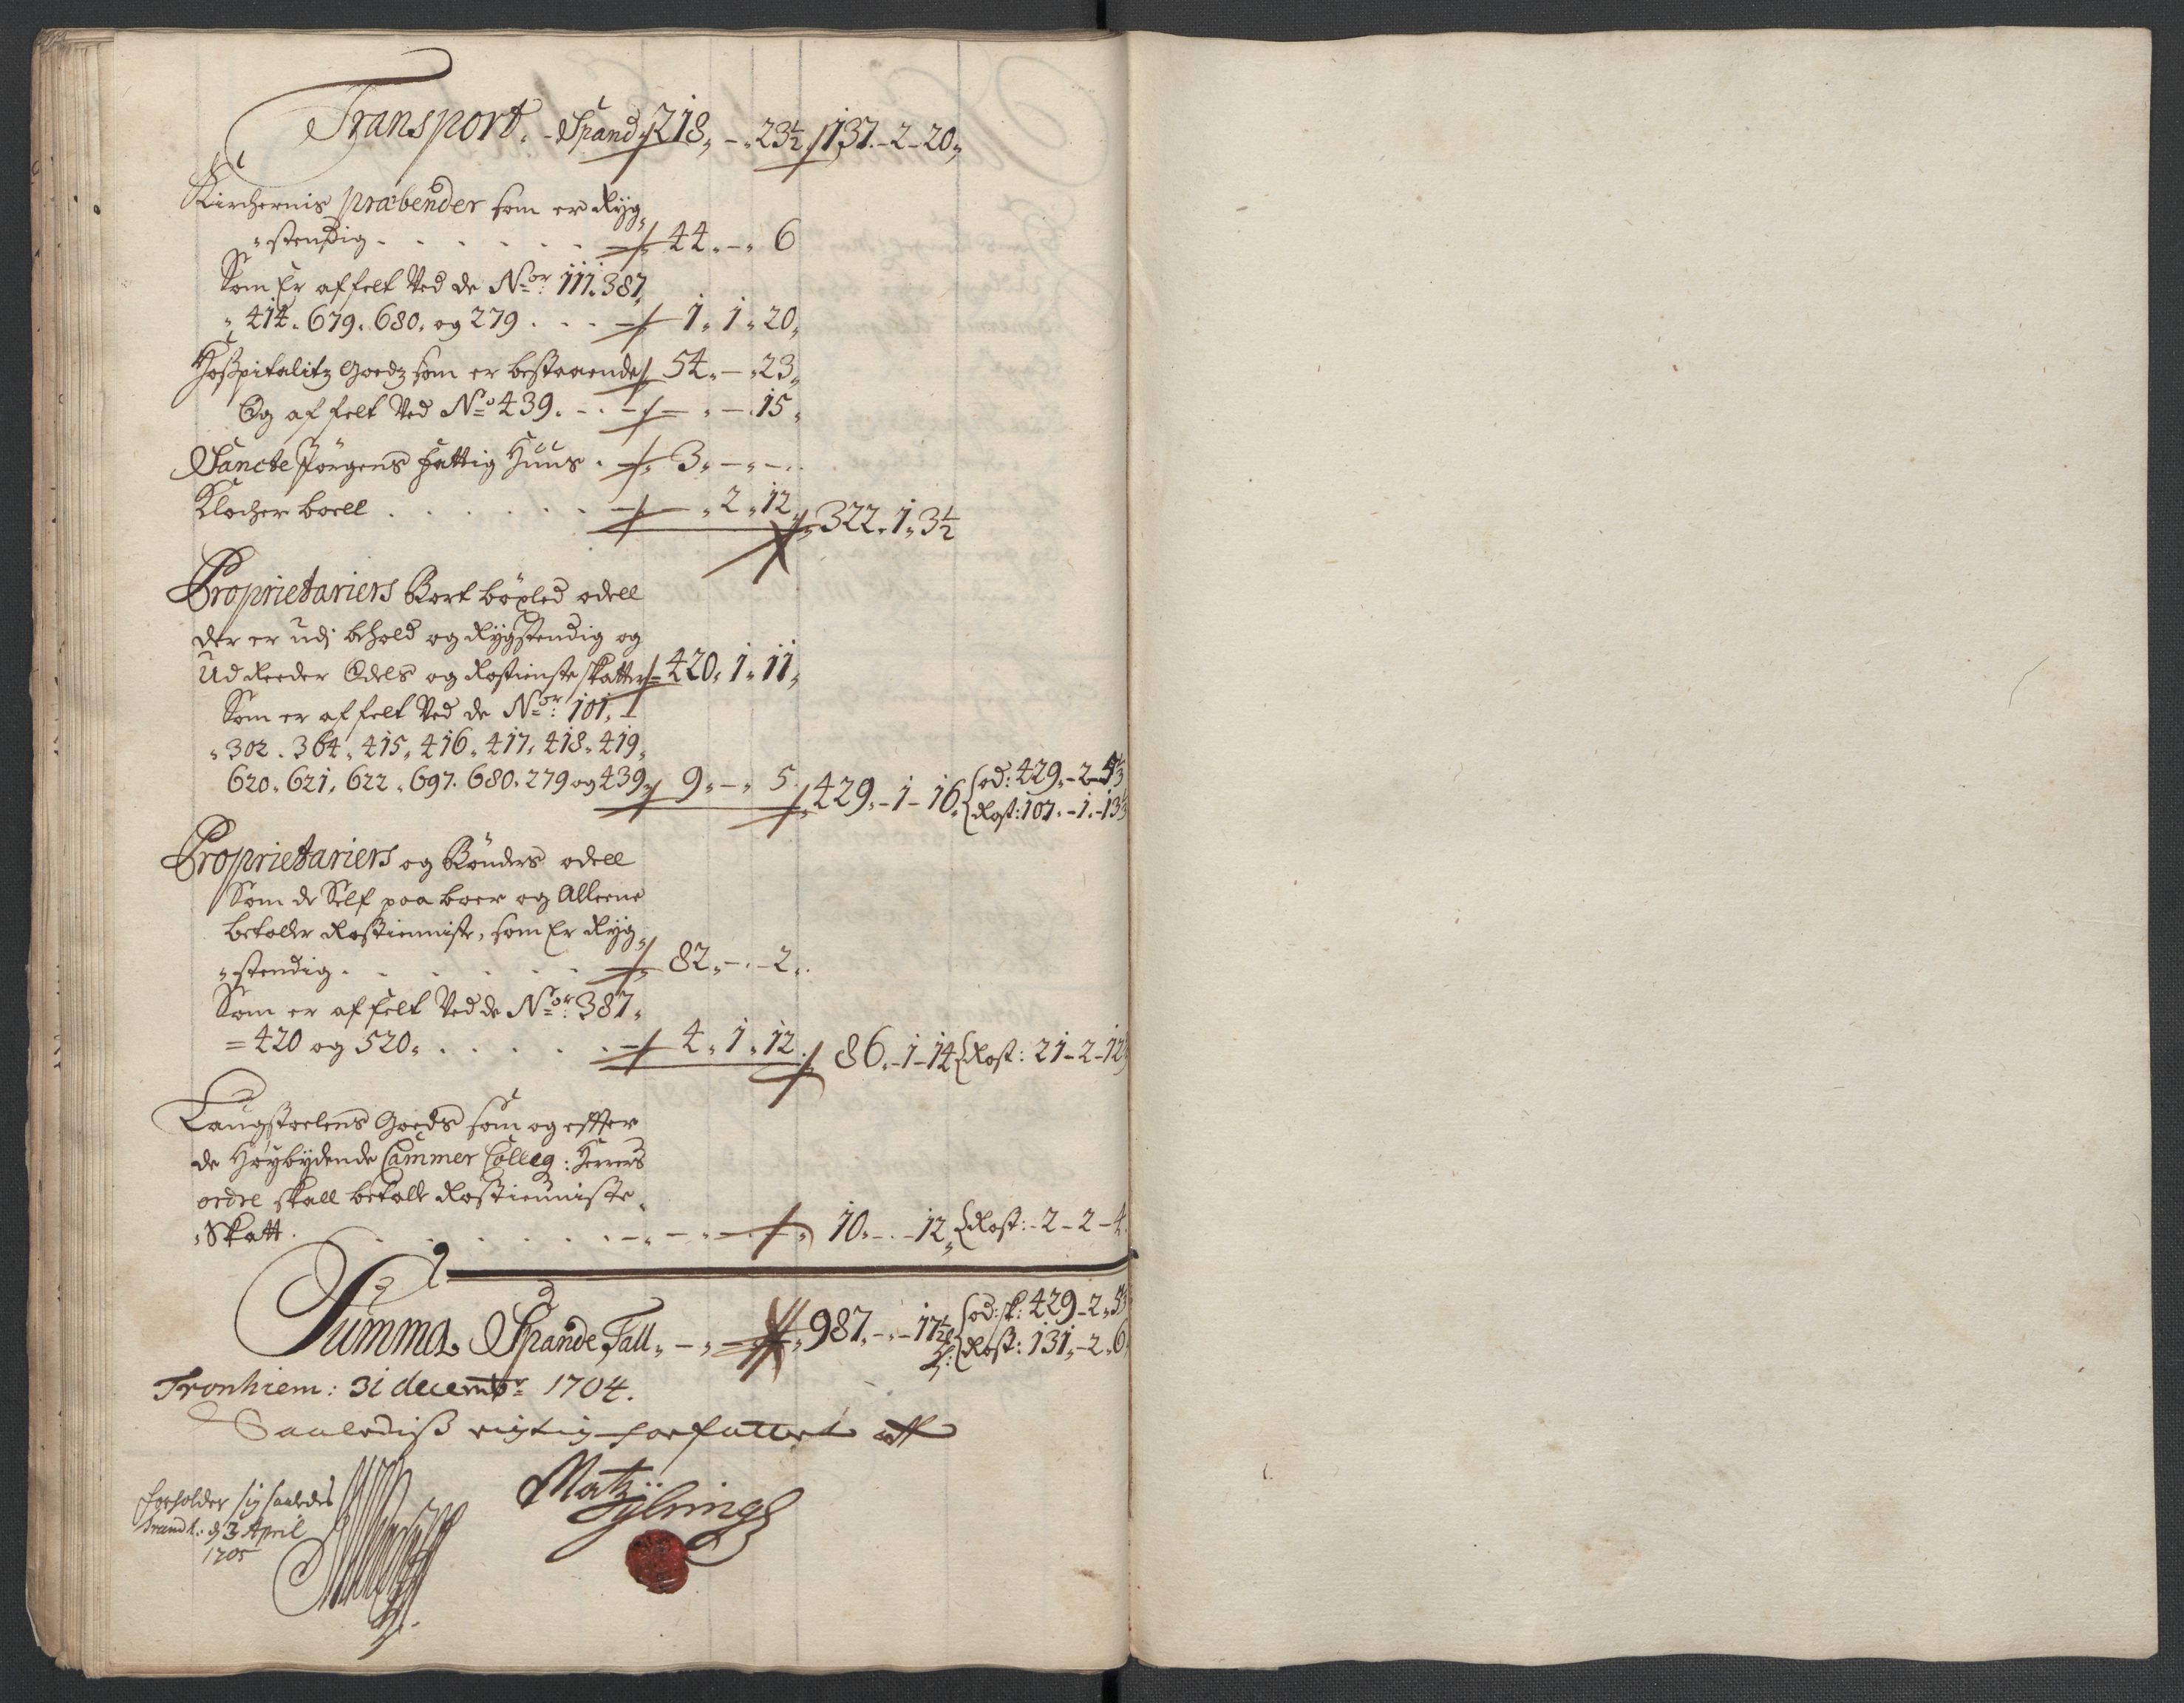 Transport. - Spand 218, - 23½ 137. - 2 - 20,
Kirchernis præbender som er Ryg,,
,,stendig . . . . . . 44. - 6
Som Er affelt Ved de No:r 111. 387,
,, 414. 679. 680. og 279 . . . 1. 1. 20,
Hospitalitz Goedz som er bestaaende 54. - 23,
Og affelt Ved No 439. . . - - 15,
Sancte Jörgens fattig Huus . 3. - -
Klocher boell . . . . . . - 2. 12, 322. 1. 3½
Proprietariers Bort böxled odell
der er udj behold og Rygstendig og
Ud Reeder Odels og Rostienste skatter 420. 1. 11,
Som er affelt Ved de No:r 101,
,, 302. 364. 415. 416. 417. 418. 419,
620. 621. 622. 697. 680. 279 og 439, 9. - 5. 429. - 1 - 16. {od: 429. - 2 - 5⅓
{Rost: 107. - 1. - 13⅓
Proprietariers og Bönders odell
Som de Self paa boer og Alleene
betaller Rostienniste, som Er Ryg,,
,,stendig . . . . . . 82. - - 2.
Som er affelt Ved de No:r 387,
= 420 og 520. . . . . . 4. 1. 12. 86. - 1 - 14 {Rost: 21 - 2 - 12
Laugstoelens Goeds som og effter
de Høybydende Cammer Colleg: Herrers
ordre skall betalle Rostienniste,,
,,Skatt . . . . . . . 10. - - 12, {Rost: - 2 - 2 - 4.
Summa. Spande Tall, - - 987. - - 17½ {od: sk: 429 - 2. 5⅓
{Rost: 131, - 2. 6
Tronhiem: 31 decembr 1704.
Saalediß rigtig forfattet aff
Matz Sylning
forholder sig saaledes
Trundh: d 3 April
1705